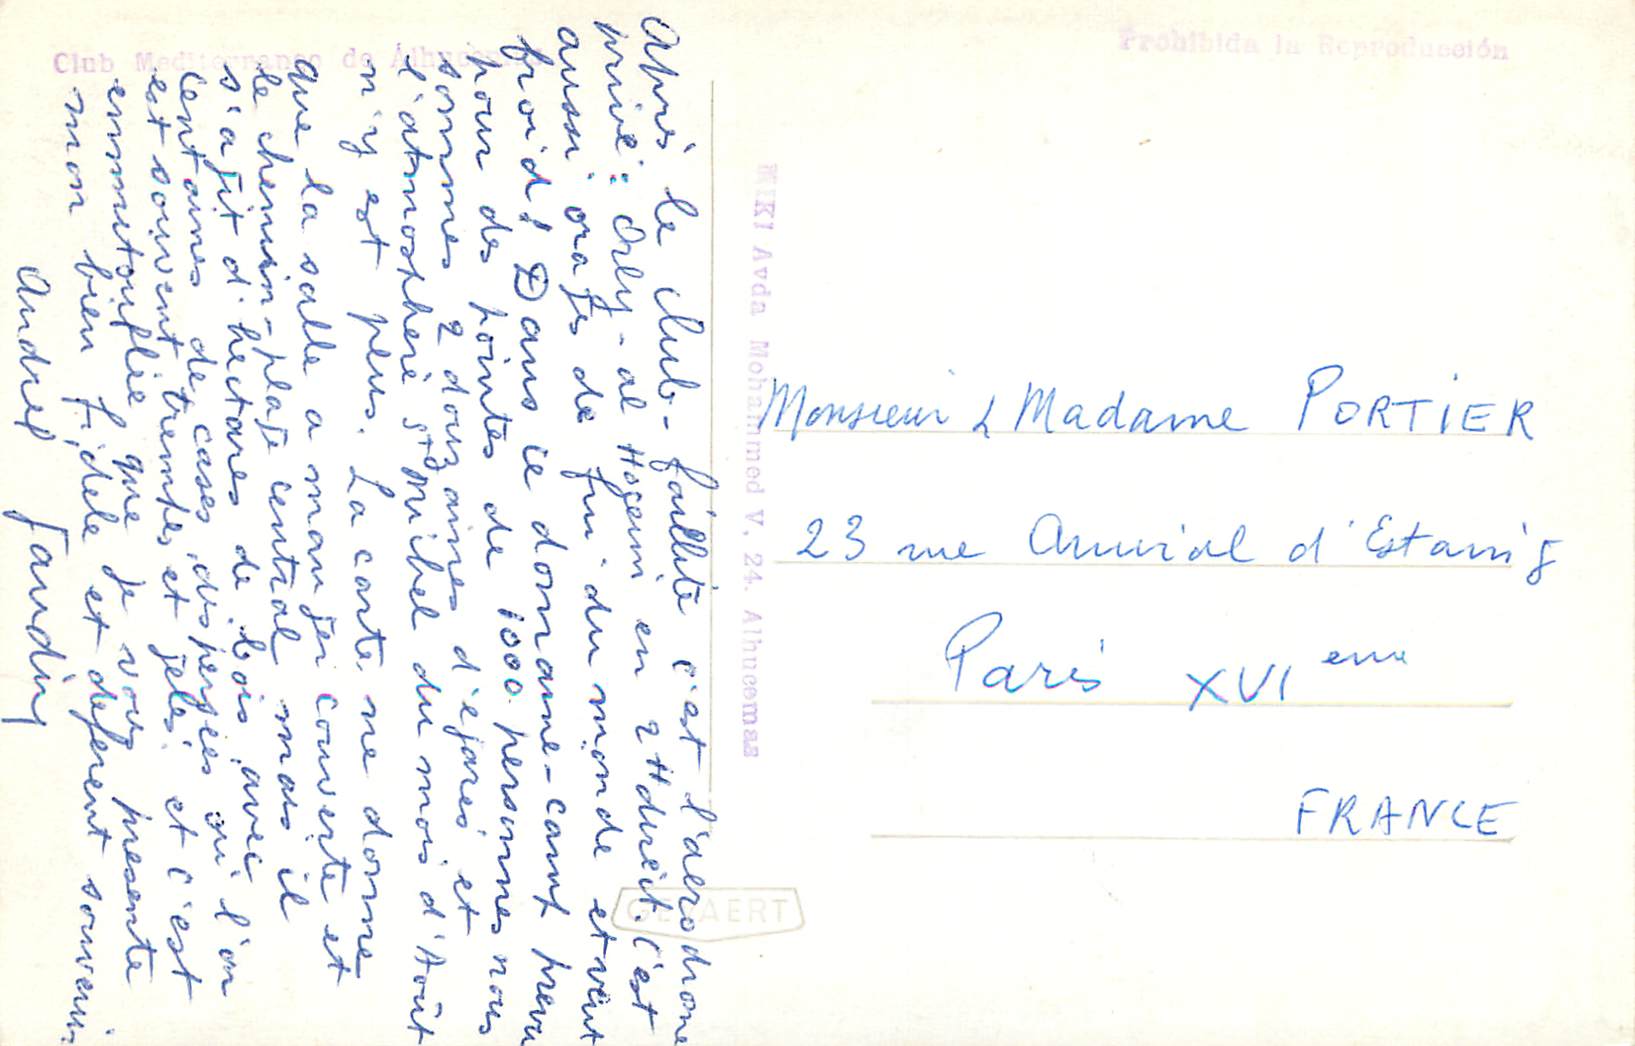 Club Mediterraneo de Alhucemas
Prohibida la Reproducción
Après le club-faillite c'est l'aerodrome
privé: Orly-al Hogeim en 2H direct. C'est
aussi orages de fin du monde et vent
froid! Dans ce domaine-camp prévu
pour des pointes de 1000 personnes nous
sommes 2 douzaines d'égarés et
l'atmosphère St Michel du mois d'Août
n'y est plus. La carte ne donne
que la salle a manger couverte et
le chemin-plage central mais il
s'agit d'hectares de bois avec
centaines de cases dispersées où l'on
est souvent trempés et gelés et c'est
emmitouflée que je vous présente
mon bien fidèle et déférent souvenir
Andrée
MIKI Avda Mohammed V, 24. Alhucemas
GEVAERT
Monsieur & Madame PORTIER
23 rue Amiral d'Estaing
Paris XVI eme
FRANCE